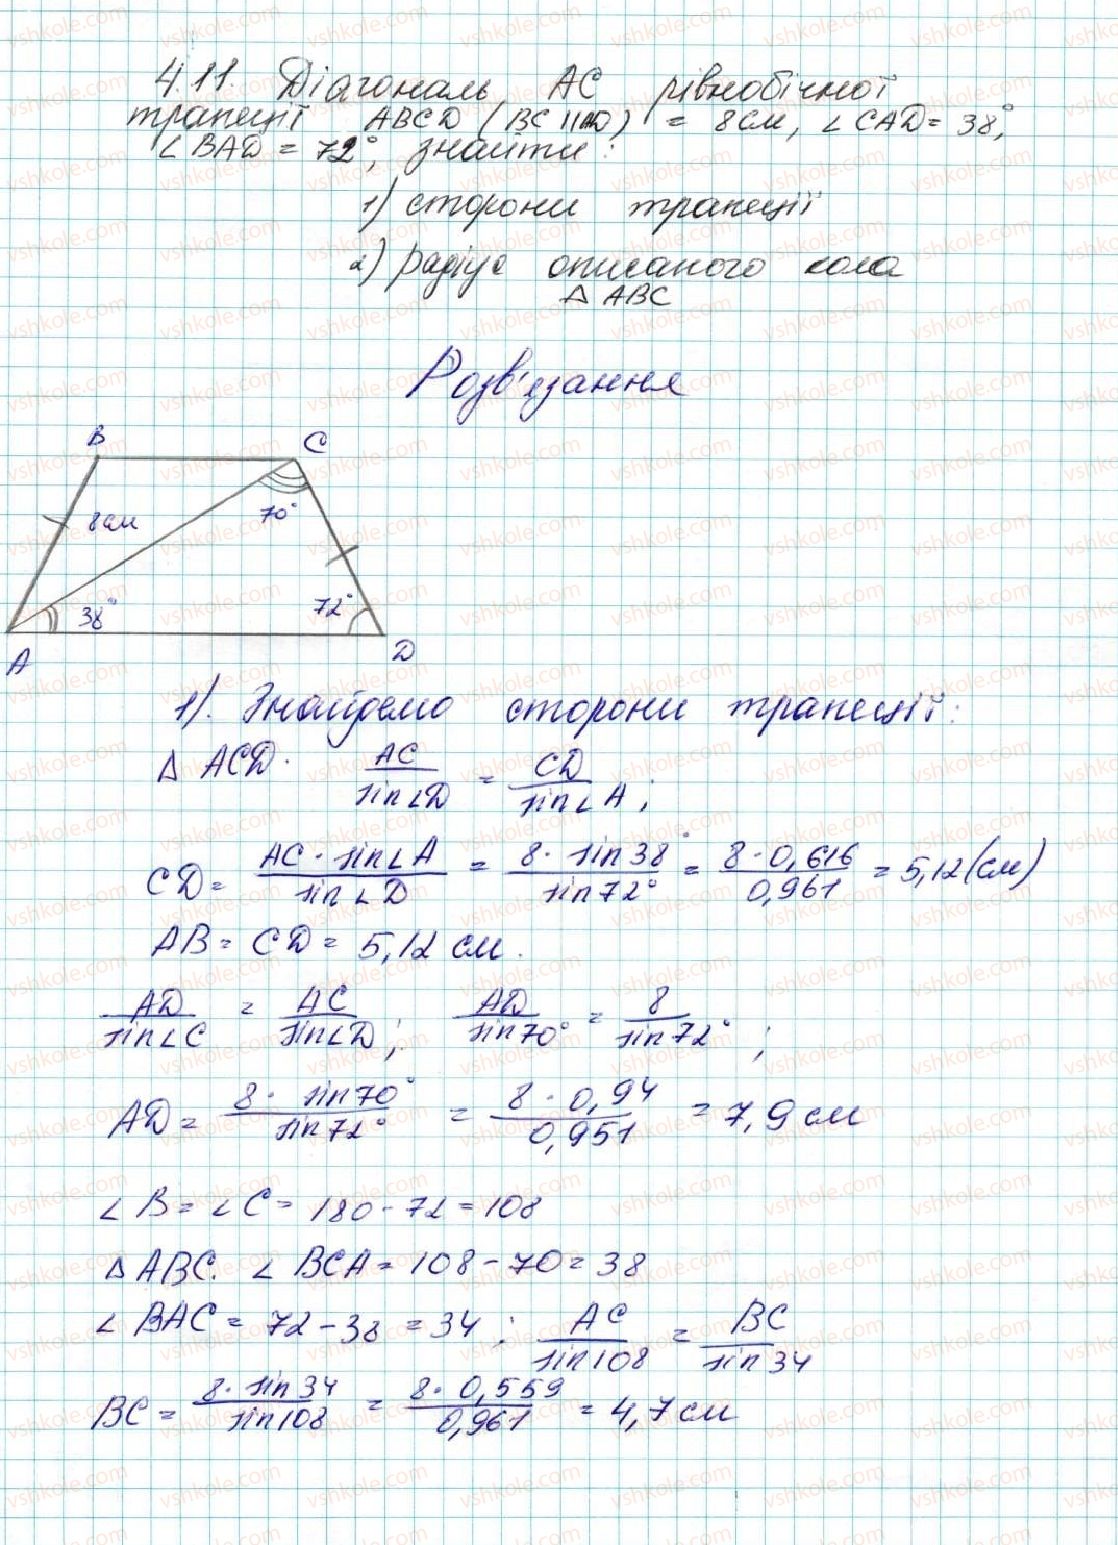 4.11. Діагональ AC рівнобічної
трапеції ABCD (BC||AD) = 8см, ∠CAD = 38°,
∠BAD = 72°, знайти:
1) сторони трапеції
2) радіус описаного кола
△ ABC
Розв'язання
B C
8см 70°
38° 72°
A D
1). Знайдемо сторони трапеції:
△ ACD. AC/sin∠D = CD/sin∠A;
CD = AC · sin∠A / sin∠D = 8 · sin38° / sin72° = 8 · 0,616 / 0,961 = 5,12 (см)
AB = CD = 5,12 см.
AD/sin∠C = AC/sin∠D; AD/sin70° = 8/sin72°;
AD = 8 · sin70° / sin72° = 8 · 0,94 / 0,951 = 7,9 см
∠B = ∠C = 180 - 72 = 108
△ ABC. ∠BCA = 108 - 70 = 38
∠BAC = 72 - 38 = 34; AC/sin108 = BC/sin34
BC = 8 · sin34 / sin108 = 8 · 0,559 / 0,961 = 4,7 см